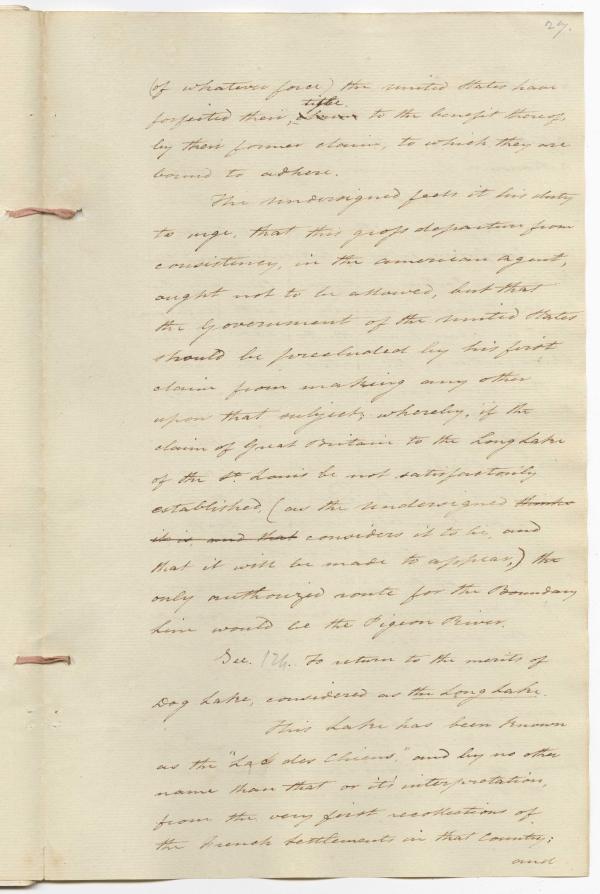 27.
(of whatever force) the United States have
title
forfeited their, claim to the benefit thereof,
by their former claim, to which they are
bound to adhere.
The Undersigned feels it his duty
to urge, that this gross departure from
consistency, in the american agent,
ought not to be allowed, but that
the Government of the United States
should be precluded by his first
claim from making any other
upon that subject; whereby, if the
claim of Great Britain to the Long Lake
of the St. Louis be not satisfactorily
established, (as the Undersigned thinks
it is, and that considers it to be, and
that it will be made to appear,) the
only authorized route for the Boundary
Line would be the Pigeon River.
Sec. 124. To return to the merits of
Dog Lake, considered as the Long Lake.
This Lake has been known
as the "Lac des Chiens," and by no other
name than that or it's interpretation,
from the very first recollections of
the French Settlements in that Country;
and